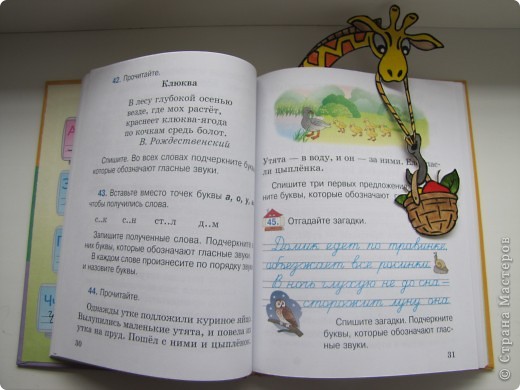 42. Прочитайте.
Клюква
В лесу глубокой осенью
везде, где мох растёт,
краснеет клюква-ягода
по кочкам средь болот.
В. Рождественский
Спишите. Во всех словах подчеркните
буквы, которые обозначают гласные звуки.
43. Вставьте вместо точек буквы а, о, у,
чтобы получились слова.
с..к с..н ст..л д..м
Запишите полученные слова. Подчеркните в
них буквы, которые обозначают гласные
В каждом слове произнесите по порядку звуки
и назовите буквы.
44. Прочитайте.
Однажды утке подложили куриное яйцо.
Вылупились маленькие утята, и повела их
утка на пруд. Пошёл с ними и цыплёнок.
30
Утята — в воду, и он — за ними. Еле
ли цыплёнка.
Спишите три первых предложения.
ните буквы, которые обозначают
45. Отгадайте загадки.
Домик едет по травинке,
объезжает все росинки.
В ночь глухую не до сна —
сторожит луну она
Спишите загадки. Подчеркните
буквы, которые обозначают глас-
ные звуки.
31
© Страна Мастеров